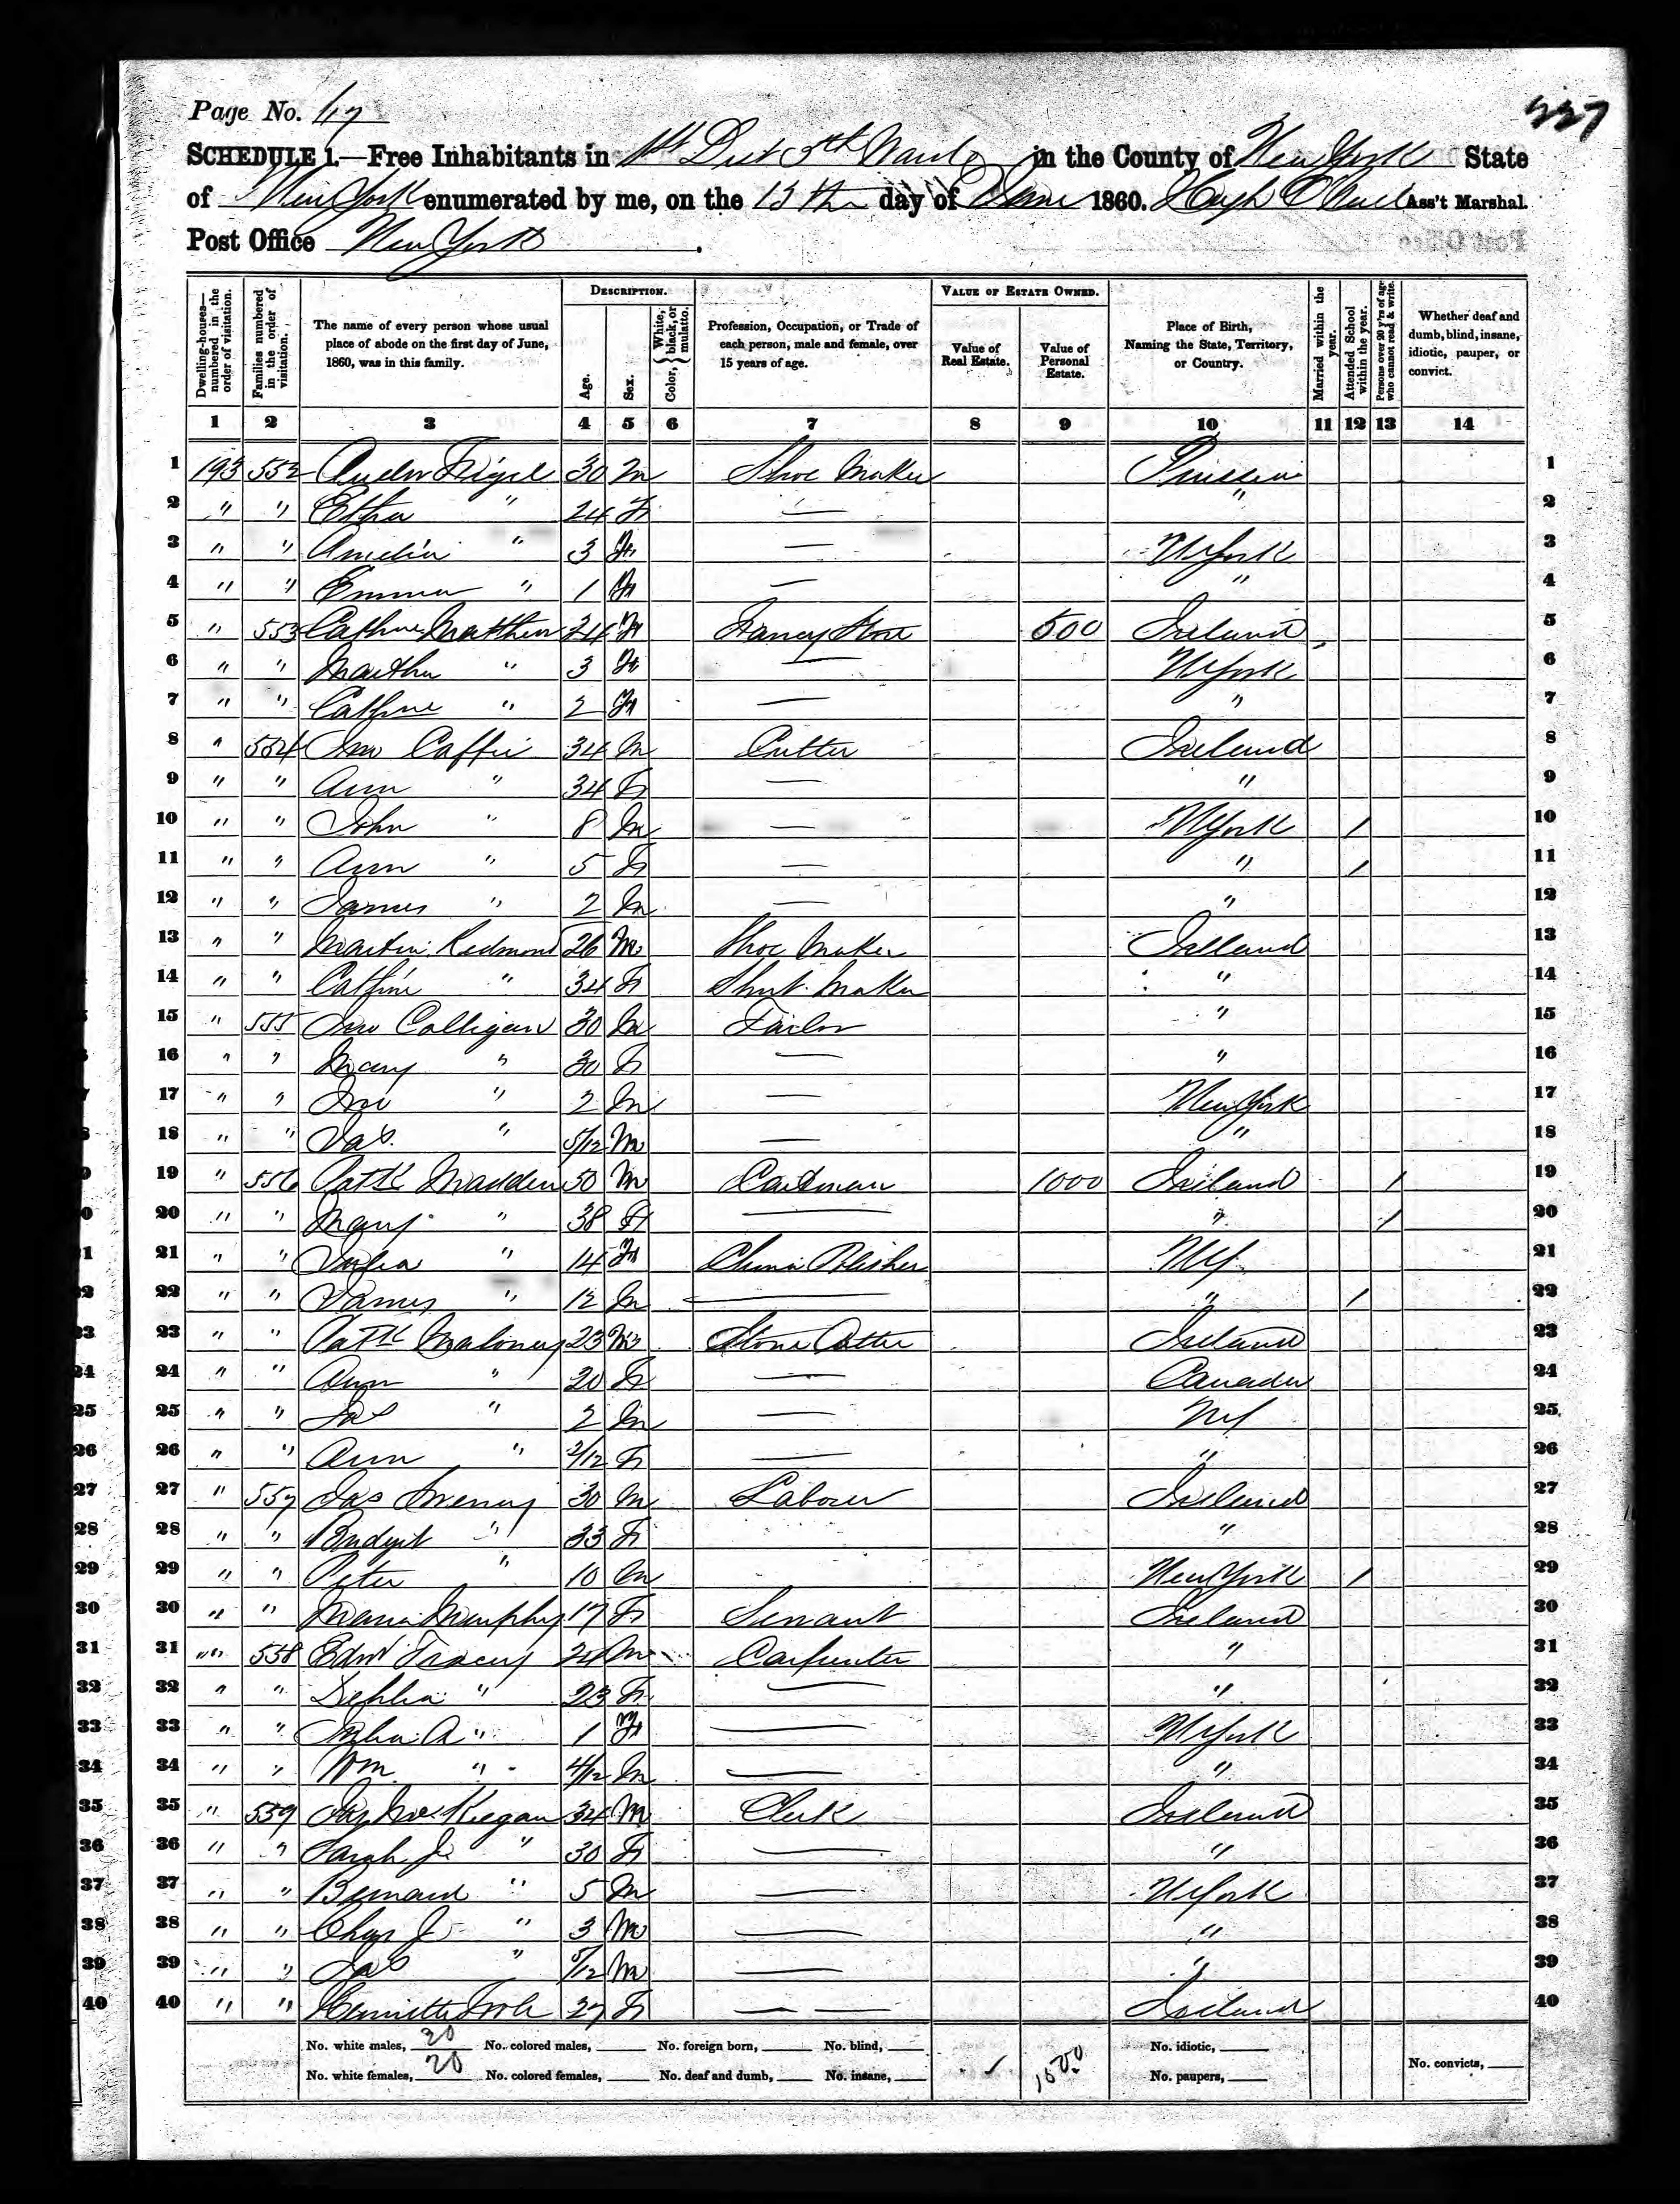 Page No. 67
227
SCHEDULE 1.—Free Inhabitants in 1st Dist 5th Ward in the County of New York State
of New York enumerated by me, on the 15th day of June 1860. Hugh O'Neil Ass't Marshal.
Post Office New York.
Dwelling-houses—numbered in the order of visitation.
Families numbered in the order of visitation.
The name of every person whose usual place of abode on the first day of June, 1860, was in this family.
DESCRIPTION.
Age.
Sex.
Color, { White, black, or mulatto.
Profession, Occupation, or Trade of each person, male and female, over 15 years of age.
VALUE OF ESTATE OWNED.
Value of Real Estate.
Value of Personal Estate.
Place of Birth, Naming the State, Territory, or Country.
Married within the year.
Attended School within the year.
Persons over 20 y'rs of age who cannot read & write.
Whether deaf and dumb, blind, insane, idiotic, pauper, or convict.
1 2 3 4 5 6 7 8 9 10 11 12 13 14
1 193 552 30 m Shoe Maker Prussia 1
2 " " " 24 F — " 2
3 " " Amelia " 3 F — N York 3
4 " " Emma " 1 F — " 4
5 " 553 Cathne Matthew 24 F Fancy Store 500 Ireland 5
6 " " Martha " 3 F — N York 6
7 " " Cathne " 2 F — " 7
8 " 554 Jno Caffri 34 m Cutter Ireland 8
9 " " Ann " 34 F — " 9
10 " " John " 8 m — N York / 10
11 " " Ann " 5 F — " / 11
12 " " James " 2 m — " 12
13 " " Martin Redmond 26 m Shoe Maker Ireland 13
14 " " Cathne " 34 F Shirt Maker " 14
15 " 555 Jno Colligan 30 m Tailor " 15
16 " " Mary " 30 F — " 16
17 " " Jno " 2 m — New York 17
18 " " Jas. " 5/12 m — " 18
19 " 556 Patk Madden 50 m Cartman 1000 Ireland / 19
20 " " Mary " 38 F — " / 20
21 " " Julia " 14 F China Polisher NY 21
22 " " James " 12 m — " / 22
23 " " Patk Maloney 23 m Stone Cutter Ireland 23
24 " " Ann " 20 F — Canada 24
25 " " Jas " 2 m — NY 25
26 " " Ann " 2/12 F — " 26
27 " 557 Jas 30 m Labourer Ireland 27
28 " " Bridget " 33 F " 28
29 " " Peter " 10 m New York / 29
30 " " Maria Murphy 17 F Servant Ireland 30
31 " 558 Edwd Tracey 24 m Carpenter " 31
32 " " Dehlia " 23 F — " 32
33 " " Julia A " 1 F — N York 33
34 " " Wm " 4/12 m — " 34
35 " 559 Keegan 34 m Clerk Ireland 35
36 " " Sarah J. " 30 F — " 36
37 " " Bernard " 5 m — N York 37
38 " " Chas J " 3 m — " 38
39 " " Jas " 5/12 m — " 39
40 " " 27 F — — Ireland 40
No. white males, 20 No. colored males, No. foreign born, No. blind, No. idiotic,
No. white females, 20 No. colored females, No. deaf and dumb, No. insane, 1500 No. paupers, No. convicts,